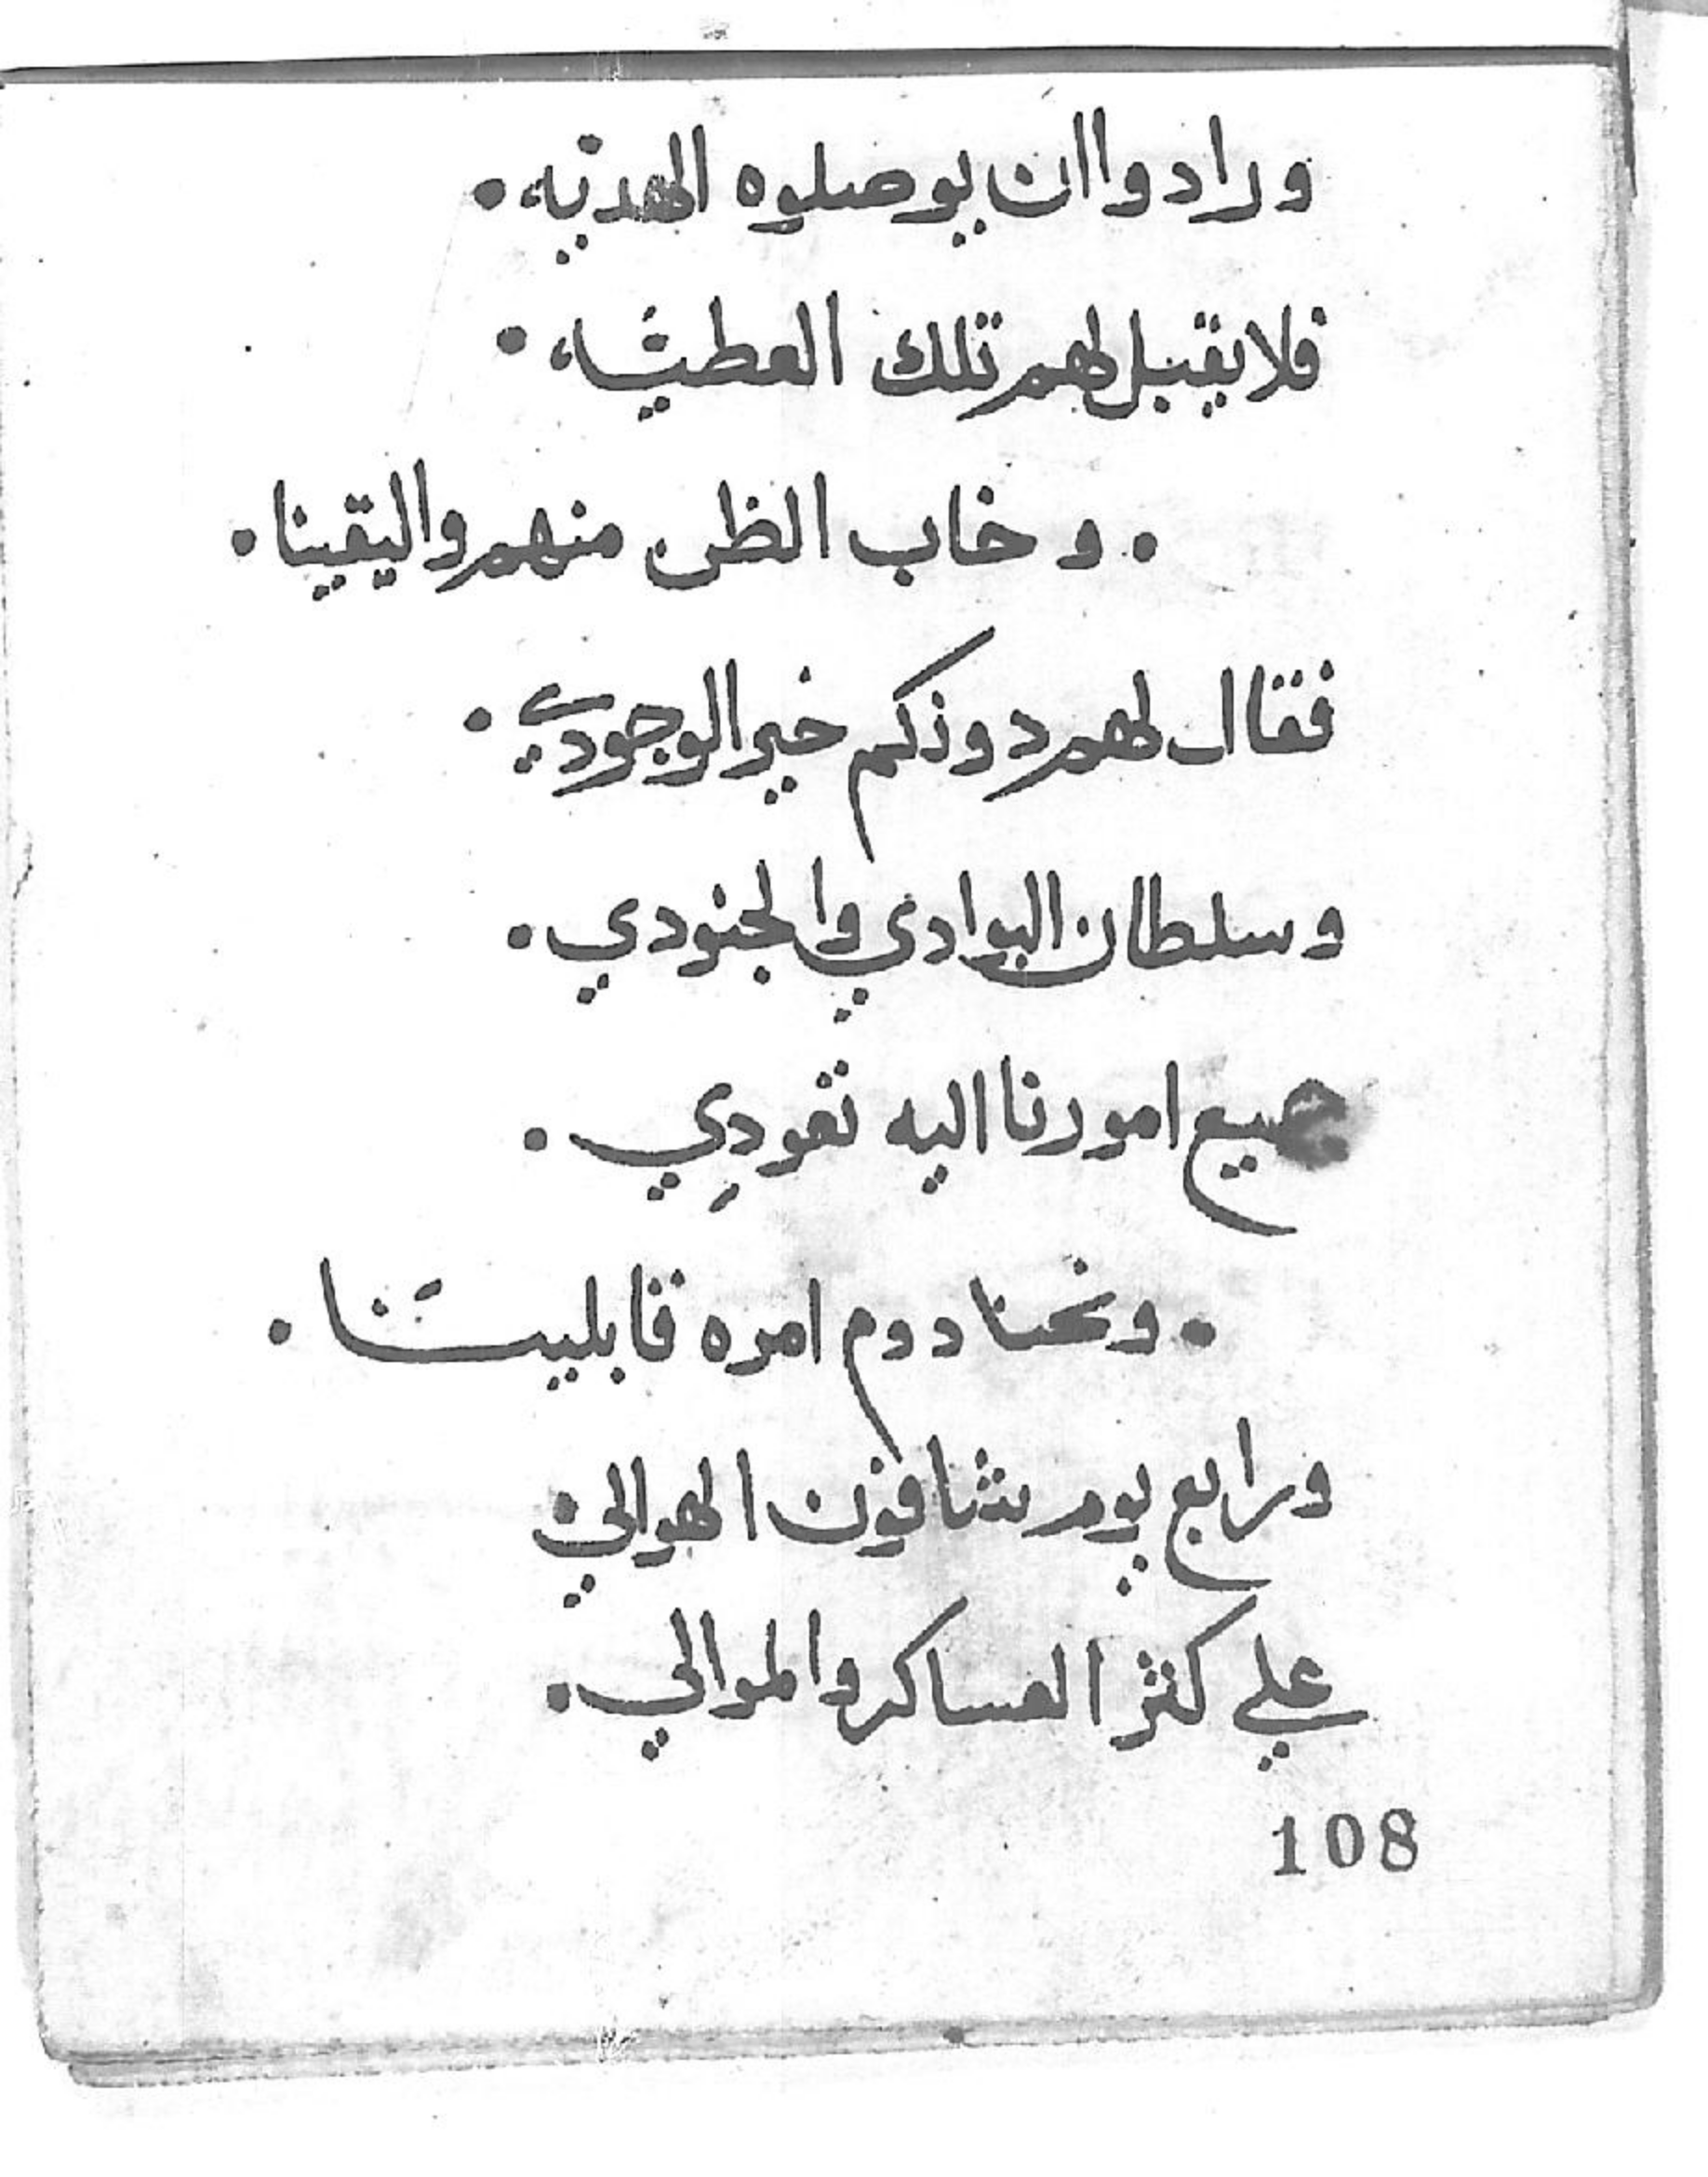 ورادوا ان يوصلوه الهديه .
فلا يقبل لهم تلك العطيّا .
. وخاب الظن منهم واليقينا .
فقال لهم دونكم خير الوجودي .
وسلطان البوادي والجنودي .
جميع امورنا اليه تعودِي .
. ونحنا دوم امره قابلينَا .
ورابع يوم شافون الهوالي .
علي كثر العساكر والموالي .
108